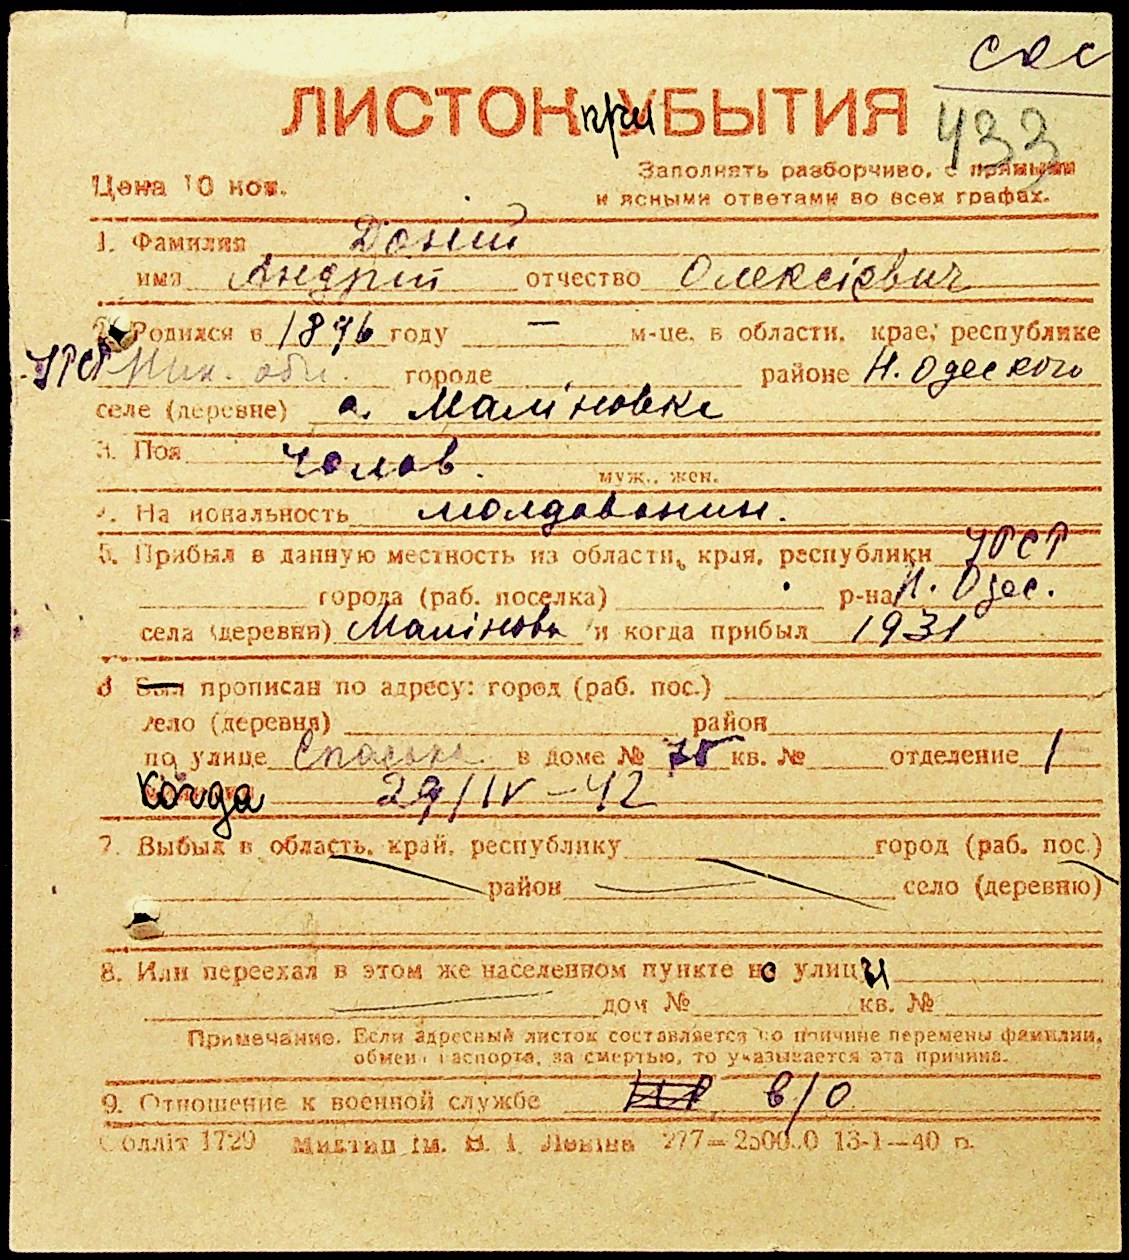 433
ЛИСТОК при УБЫТИЯ
Цена 10 коп.
Заполнять разборчиво, с прямыми
и ясными ответами во всех графах.
1. Фамилия Доній
имя Андрій отчество Олексієвич
Родился в 1896 году — м-це, в области, крае, республике
УРСР Мик. обл. городе районе Н. Одеского
селе (деревне) с. Маліновка
3. Пол чолов. муж., жен.
4. Национальность молдованин.
5. Прибыл в данную местность из области, края, республики УРСР
города (раб. поселка) р-на Н. Одес.
села (деревни) Маліновк и когда прибыл 1931
6 Был прописан по адресу: город (раб. пос.)
село (деревня) район
по улице Спаська в доме № 75 кв. № отделение 1
когда 29/IV-42
7. Выбыл в область, край, республику город (раб. пос.)
район село (деревню)
8. Или переехал в этом же населенном пункте с улицы
дом № кв. №
Примечание. Если адресный листок составляется по причине перемены фамилии,
обмена паспорта, за смертью, то указывается эта причина.
9. Отношение к военной службе в/о
Облліт 1729 Миктип ім. В. І. Леніна 277— 13-1—40 р.